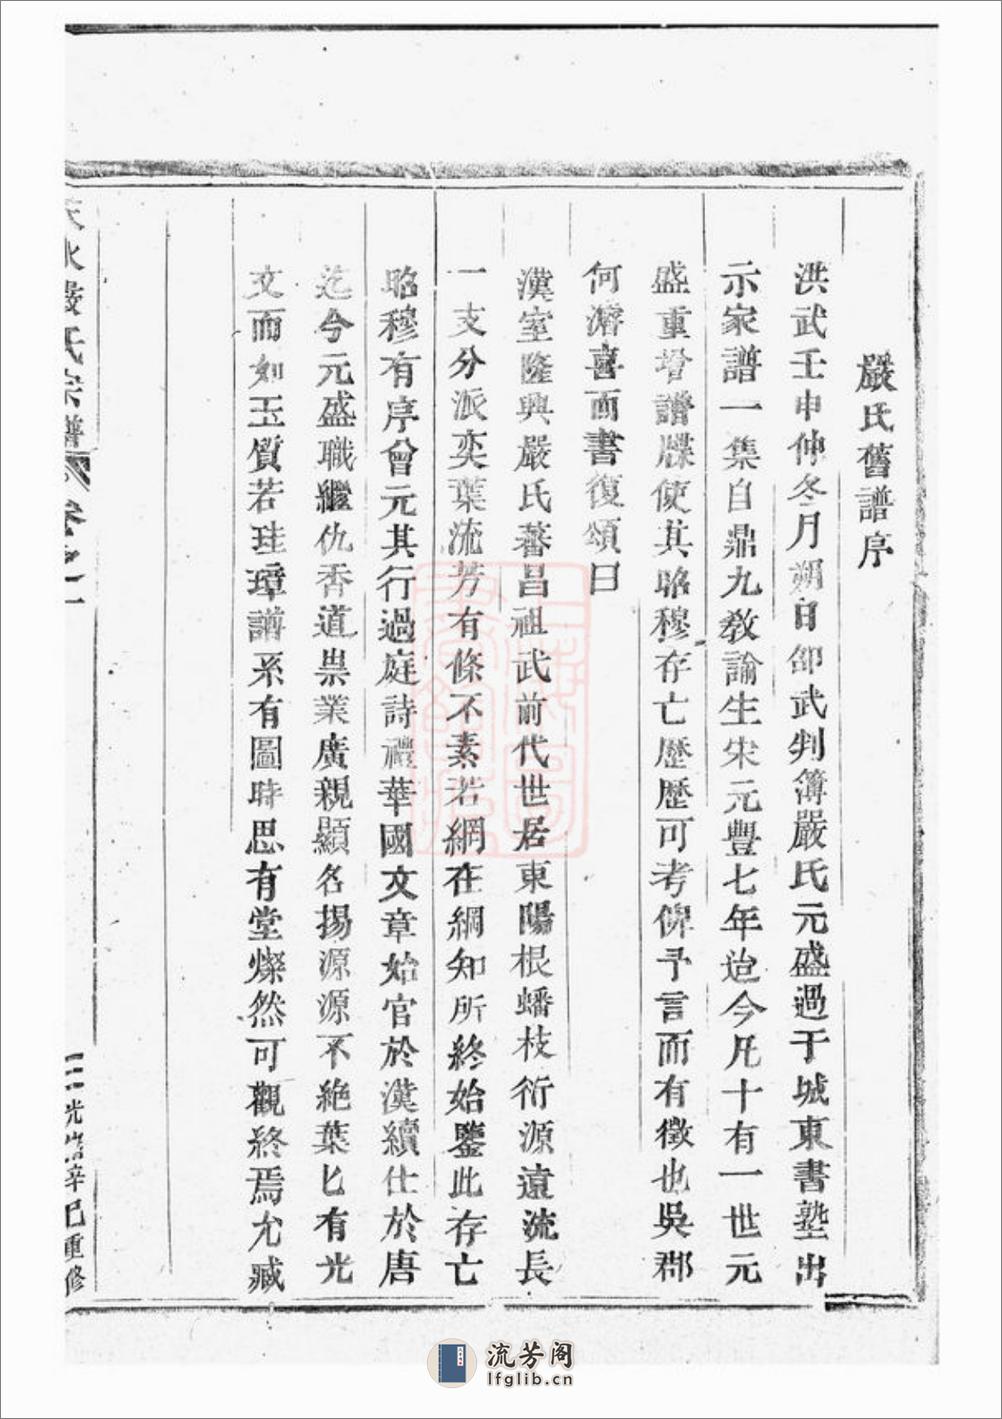 嚴氏舊譜序
洪武壬申仲冬月朔日邵武判簿嚴氏元盛過于城東書塾出
示家譜一集自鼎九敎諭生宋元豐七年迨今凡十有一世元
盛重增譜牒使其昭穆存亡歷歷可考俾予言而有徵也吳郡
何濬喜而書復頌曰
漢室隆興嚴氏蕃昌祖武前代世居東陽根蟠枝衍源遠流長
一支分派奕葉流芳有條不紊若網在綱知所終始鑒此存亡
昭穆有序曾元其行過庭詩禮華國文章始官於漢續仕於唐
迄今元盛職繼仇香道崇業廣親顯名揚源源不絶葉匕有光
文而如玉質若珪璋譜系有圖時思有堂燦然可觀終焉允臧
天水嚴氏宗譜 卷之一 光緒辛巳重修
流芳阁
lfglib.cn